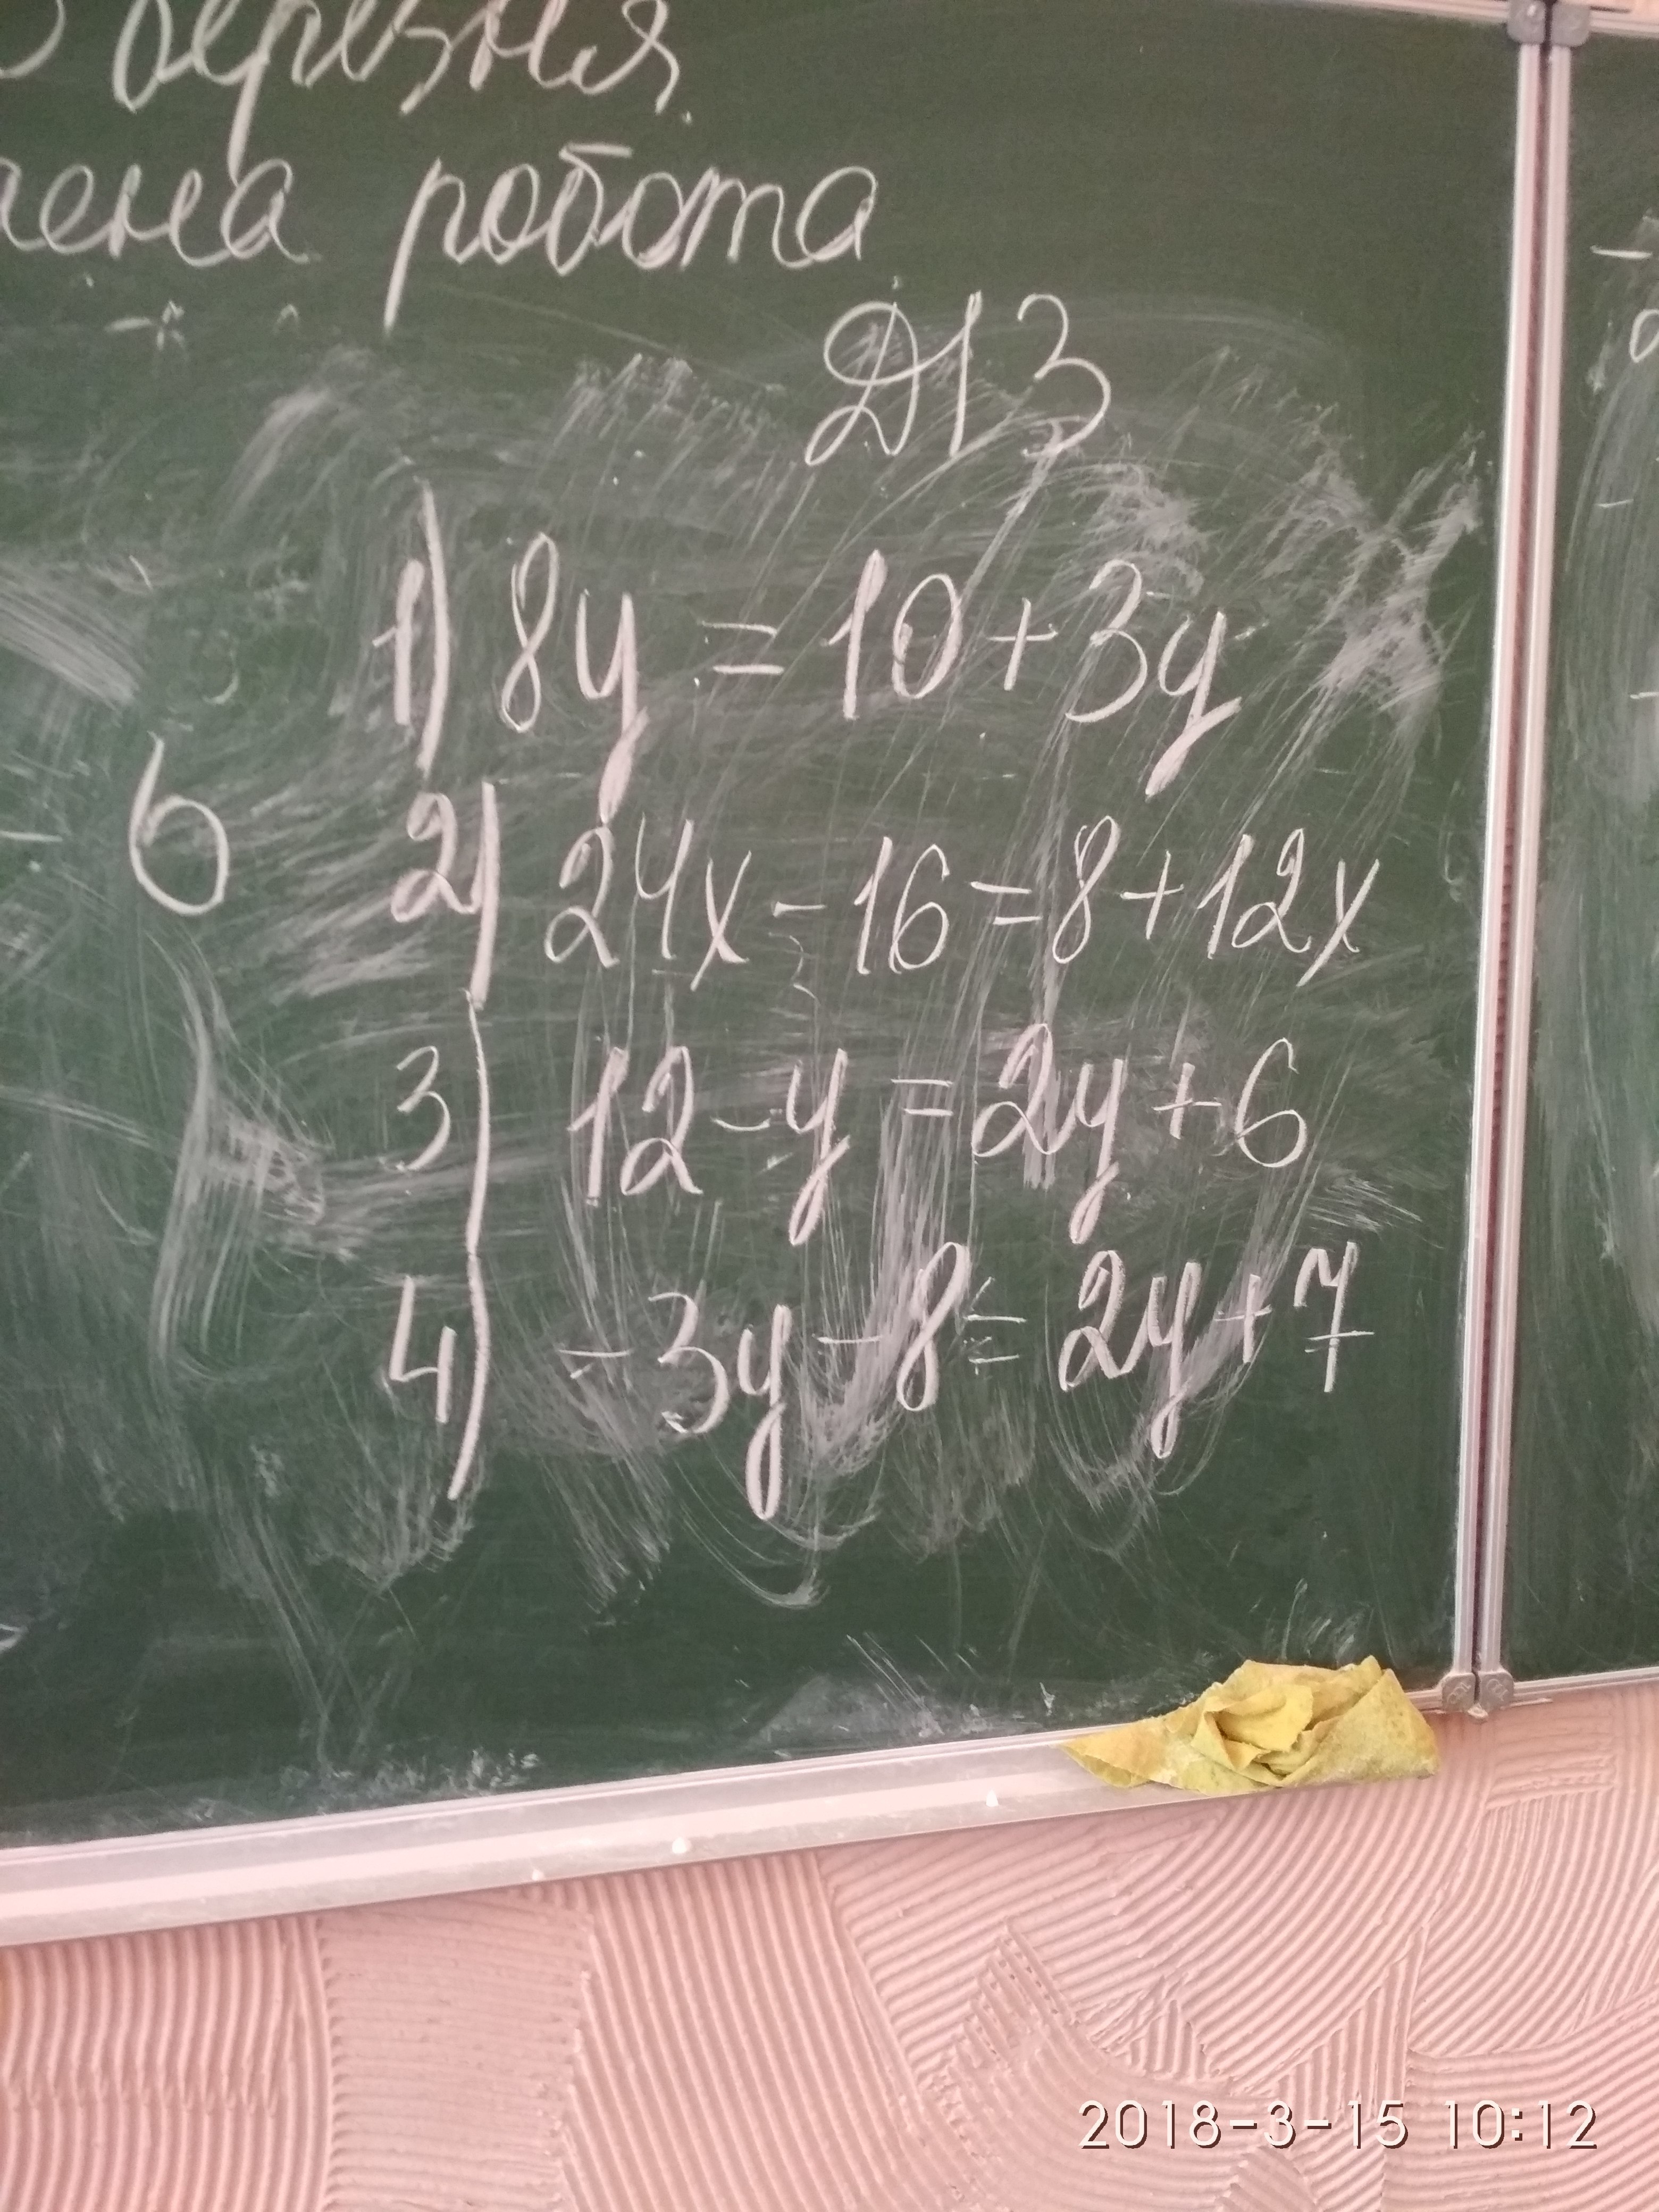 березня
робота
Д/З
1) 8y = 10 + 3y
6
2) 24x - 16 = 8 + 12x
3) 12 - y = 2y + 6
4) - 3y - 8 = 2y + 7
2018-3-15 10:12